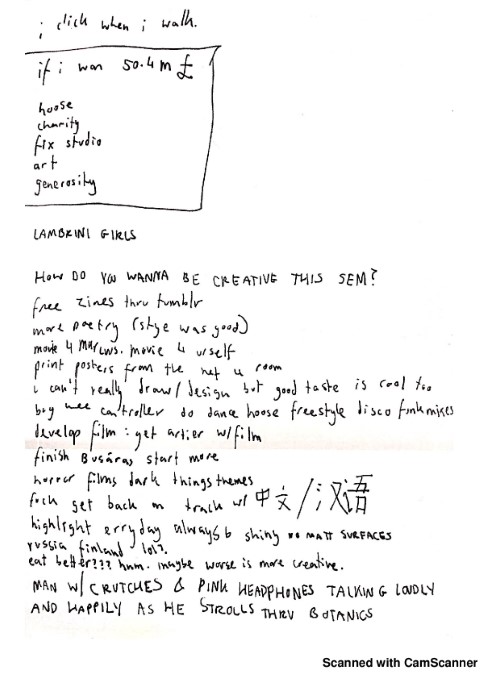 i click when i walk.
if i won 50.4m £
hoose
charity
fix studio
art
generosity
LAMBRINI GIRLS
HOW DO YOU WANNA BE CREATIVE THIS SEM?
free zines thru tumblr
more poetry (stye was good)
movie 4 . movie 4 urself
print posters from the net 4 room
i can't really draw/design but good taste is cool too
buy wee controller do dance hoose freestyle disco funk mixes
develop film : get artier w/ film
finish Busáras start more
horror films dark things themes
fuck get back on track w/ 中文/汉语
highlight erryday always b shiny no MATT SURFACES
russia finland lol?.
eat better??? hmm. maybe worse is more creative.
MAN W/ CRUTCHES & PINK HEADPHONES TALKING LOUDLY
AND HAPPILY AS HE STROLLS THRU BOTANICS
Scanned with CamScanner